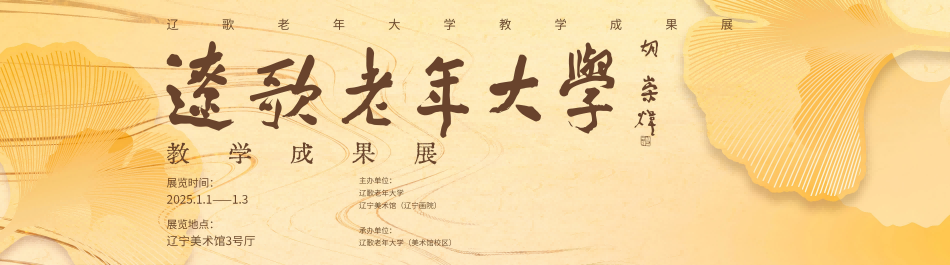 辽歌老年大学教学成果展
遼歌老年大學
胡崇煒
教学成果展
展览时间：
2025.1.1——1.3
展览地点：
辽宁美术馆3号厅
主办单位：
辽歌老年大学
辽宁美术馆（辽宁画院）
承办单位：
辽歌老年大学（美术馆校区）